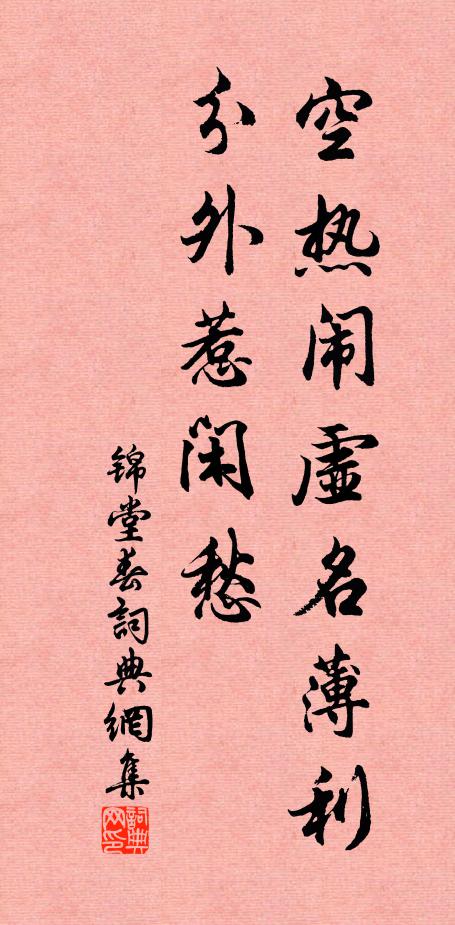 空热闹虚名薄利
分外惹闲愁
锦堂春詞典網集
詞典网印